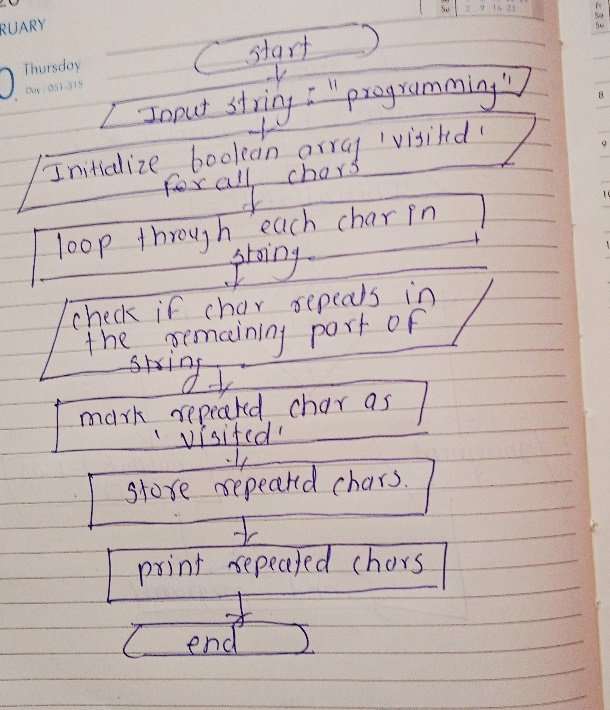 RUARY
Thursday
Day : 051-315
start
Input string : "programming"
Initialize boolean array 'visited'
for all chars
loop through each char in
string.
check if char repeats in
the remaining part of
string
mark repeated char as
'visited'
store repeated chars.
print repeated chars
end
8
9